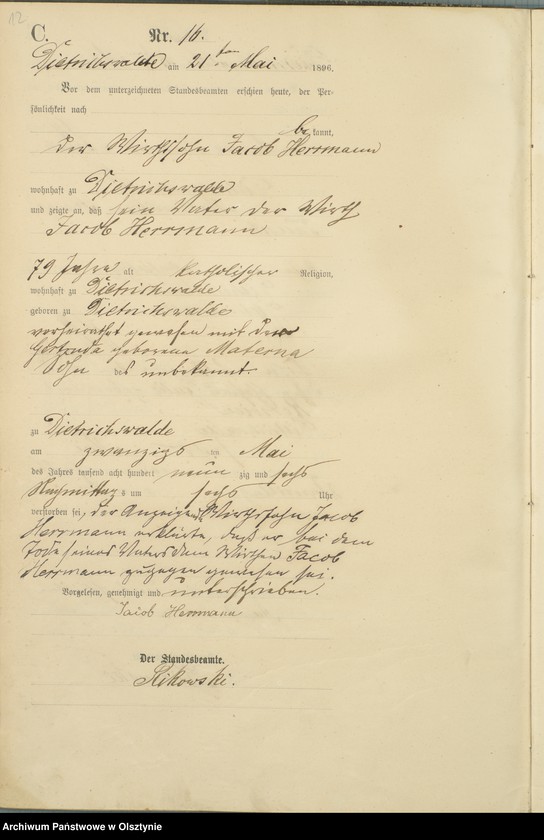 12
C.
Nr. 16.
Dietrichswalde am 21ten Mai 1896,
Vor dem unterzeichneten Standesbeamten erschien heute, der Per-
sönlichkeit nach
be kannt,
der Wirthssohn Jacob Herrmann
wohnhaft zu Dietrichswalde
und zeigte an, daß sein Vater der Wirth
Jacob Herrmann
79 Jahre alt katholischer Religion,
wohnhaft zu Dietrichswalde
geboren zu Dietrichswalde
verheirathet gewesen mit der
Gertruda geborene Materna
Sohn des unbekannt.
zu Dietrichswalde
am zwanzigs ten Mai
des Jahres tausend acht hundert neun zig und sechs
Nachmittags um sechs Uhr
verstorben sei, der Anzeigende Wirthssohn Jacob
Herrmann erklärte, daß er bei dem
Tode seines Vaters dem Wirthen Jacob
Herrmann zugegen gewesen sei.
Vorgelesen, genehmigt und unterschrieben.
Jacob Herrmann
Der Standesbeamte.
Rikowski.
Archiwum Państwowe w Olsztynie